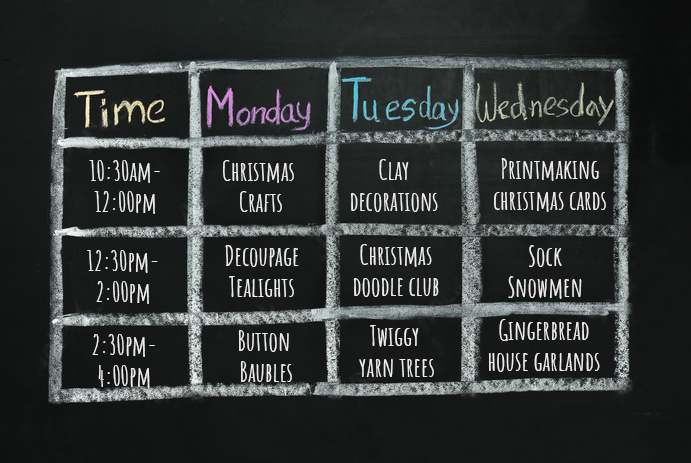 Time Monday Tuesday Wednesday
10:30AM- CHRISTMAS CLAY PRINTMAKING
12:00PM CRAFTS DECORATIONS CHRISTMAS CARDS
12:30PM- DECOUPAGE CHRISTMAS SOCK
2:00PM TEALIGHTS DOODLE CLUB SNOWMEN
2:30PM- BUTTON TWIGGY GINGERBREAD
4:00PM BAUBLES YARN TREES HOUSE GARLANDS